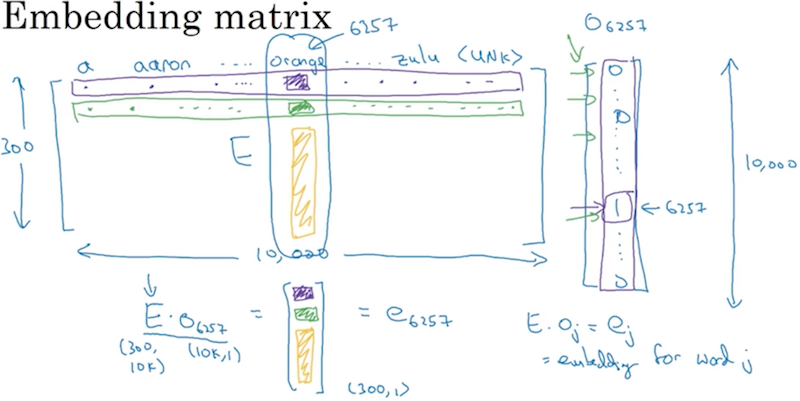 Embedding matrix
6257
O6257
a aaron ..... orange ..... zulu <UNK>
300
E
10,000
1 ← 6257
10,000
E · o6257 = = e6257
(300, 10K) (10K, 1)
(300, 1)
E · oj = ej
= embedding for word j
0
0
0